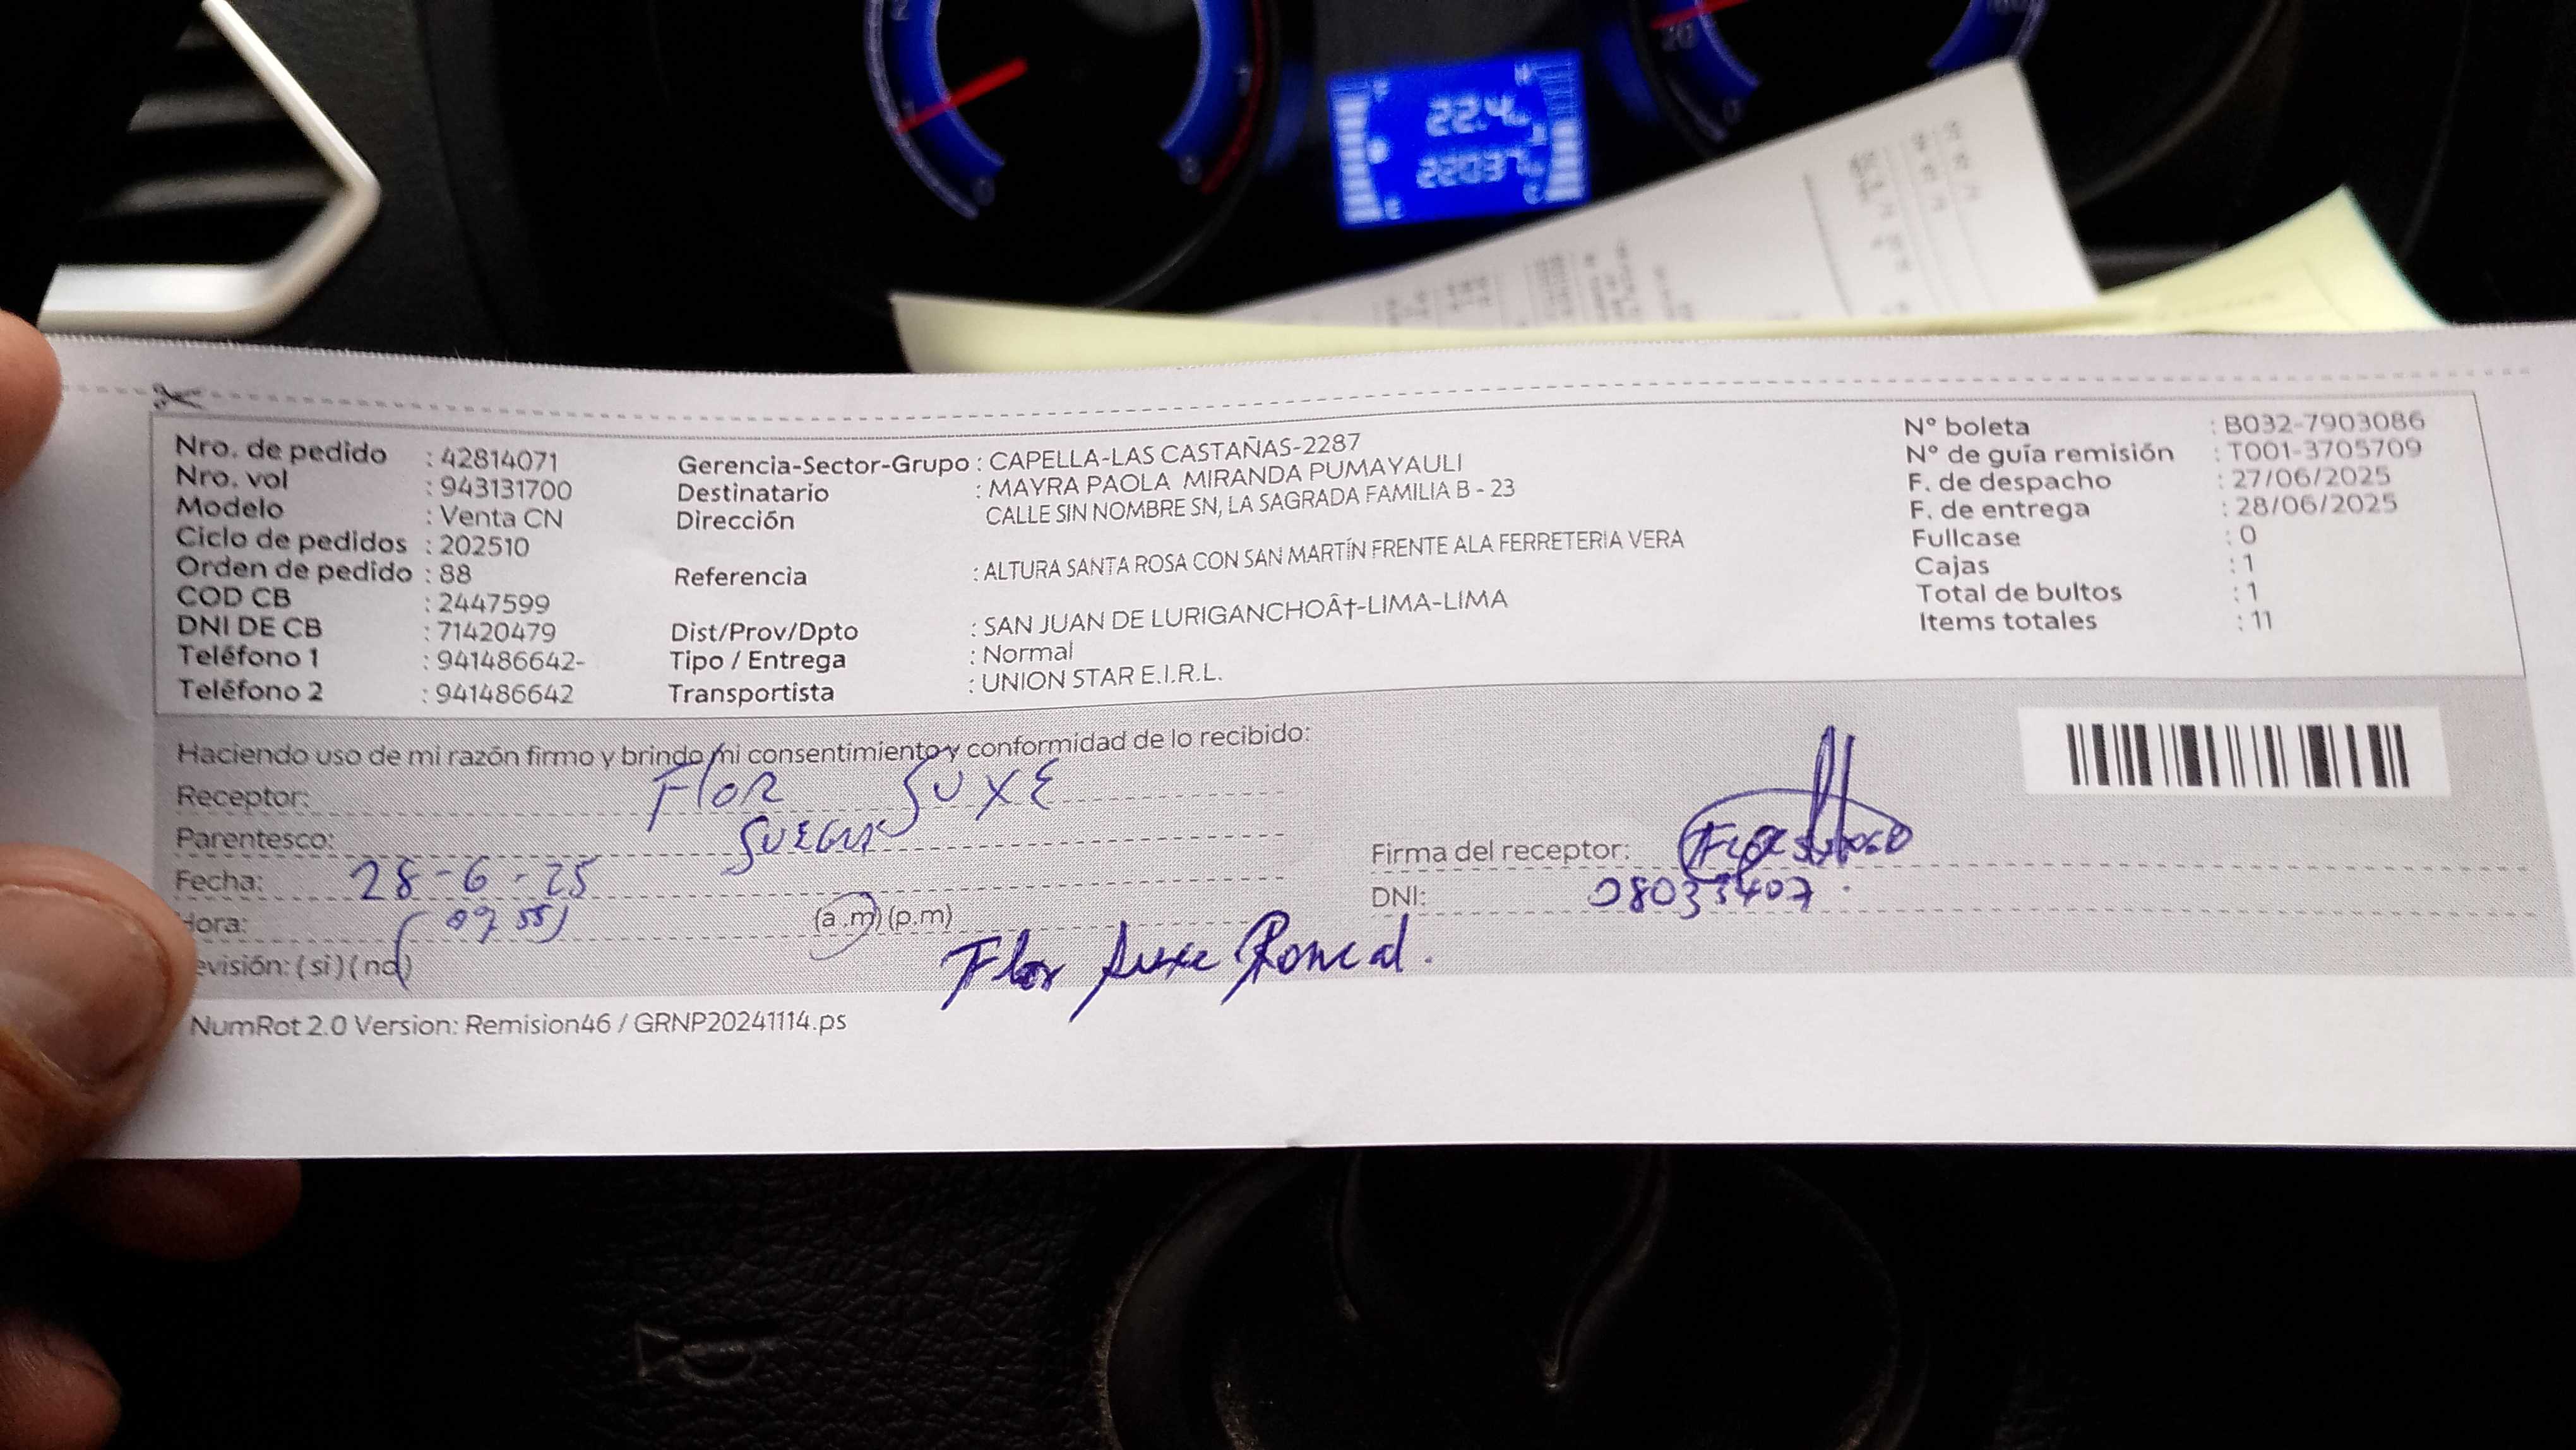 22.4
22037
Nro. de pedido : 42814071
Nro. vol : 943131700
Modelo : Venta CN
Ciclo de pedidos : 202510
Orden de pedido : 88
COD CB : 2447599
DNI DE CB : 71420479
Teléfono 1 : 941486642-
Teléfono 2 : 941486642
Gerencia-Sector-Grupo : CAPELLA-LAS CASTAÑAS-2287
Destinatario : MAYRA PAOLA MIRANDA PUMAYAULI
Dirección CALLE SIN NOMBRE SN, LA SAGRADA FAMILIA B - 23
Referencia : ALTURA SANTA ROSA CON SAN MARTÍN FRENTE ALA FERRETERIA VERA
Dist/Prov/Dpto : SAN JUAN DE LURIGANCHOÂ†-LIMA-LIMA
Tipo / Entrega : Normal
Transportista : UNION STAR E.I.R.L.
N° boleta : B032-7903086
N° de guía remisión : T001-3705709
F. de despacho : 27/06/2025
F. de entrega : 28/06/2025
Fullcase : 0
Cajas : 1
Total de bultos : 1
Items totales : 11
Haciendo uso de mi razón firmo y brindo mi consentimiento y conformidad de lo recibido:
Receptor: FloR SUXE
Parentesco: SUEGRA
Fecha: 28-6-25
Hora: 09 55 (a.m) (p.m)
evisión: (si) (no)
Firma del receptor:
DNI: 08033407
Flor Suxe Roncal.
NumRot 2.0 Version: Remision46 / GRNP20241114.ps